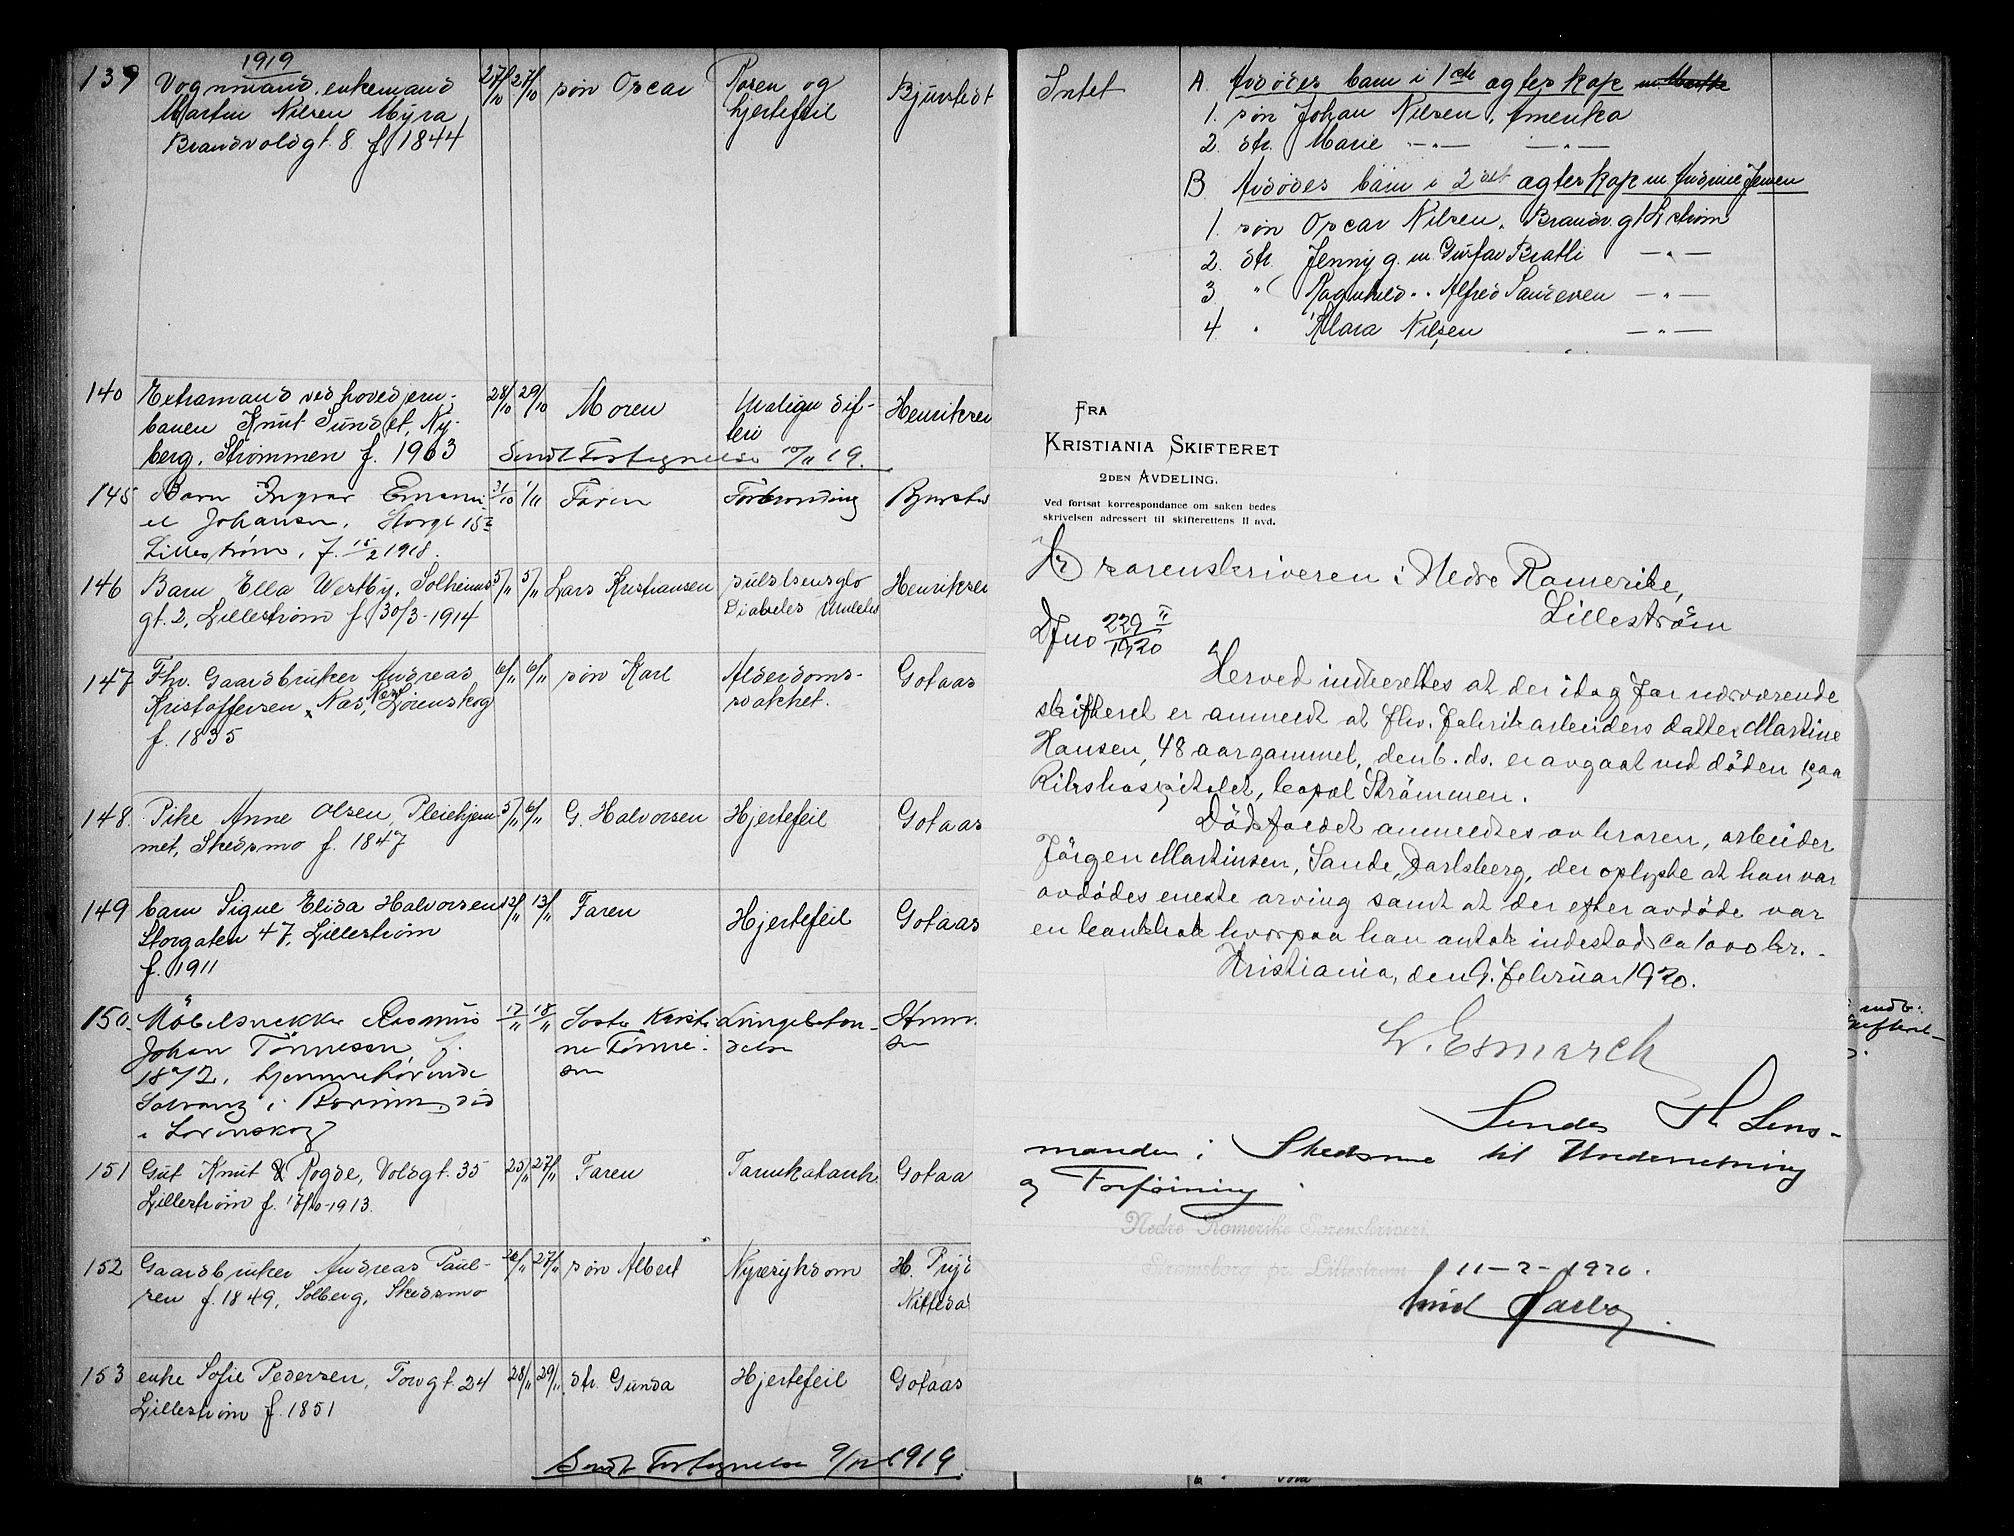 1919
139 Vognmand, enkemand 27/10 27/10 søn Oscar Rosen og Bjursledt
Martin Nilsen Myra hjertefeil
Brandvoldgt. 8. f. 1844
140 Extramand ved hovedjern- 28/10 29/10 Moren Malign dif- Henriksen
banen Knut Sundet, Ny- teri
berg, Strømmen f. 1903 Sendt Fortegnelse 10/11 19.
145 Barn Ingvar Emanu- 31/10 1/11 Faren Forbrænding
el Johansen, Storgt 15
Lillestrøm, f. 15/2 1918.
146 Barn Ella Westby, Solheims 5/11 5/11 Lars Kristiansen Henriksen
gt. 2, Lillestrøm f. 30/3-1914 Diabetes
147 Fhv. Gaardbruker Andreas 6/11 6/11 søn Karl Alderdoms- Gotaas
Kristoffersen Næs, Lørenskog svakhet.
f. 1835
148. Pike Anne Olsen, Pleiehjem- 5/11 6/11 G. Halvorsen Hjertefeil Gotaas
met, Skedsmo f. 1847
149 barn Signe Elida Halvorsen 12/11 13/11 Faren Hjertefeil Gotaas
Storgaten 47, Lillestrøm
f. 1911
150. Møbelsnekker Rasmus 17/11 18/11 Søster Kristi- Lungebeten-
Johan Tønnesen f. ne Tønne- delse
1872, hjemmehørende sen
i Bærum, død
i Lørenskog
151 Gut Knut Rogde, Voldgt. 35 25/11 27/11 Faren Tarmkatarrh Gotaa
Lillestrøm f. 17/10-1913.
152 Gaardbruker Andreas Paul- 26/11 27/11 søn Albert Nyresykdom H. Prydz
sen f. 1849, Solberg, Skedsmo Nittedal
153 enke Sofie Pedersen, Torvgt. 24 28/11 29/11 dtr. Gunda Hjertefeil Gotaas
Lillestrøm f. 1851
Sendt Fortegnelse 9/12 1919.
Intet A. Avdødes barn i 1ste egteskap
1. søn Johan Nilsen, Amerika
2. dtr. Marie —"— —"—
B. Avdødes barn i 2det egteskap m. Andrine Jensen
1. søn Oscar Nilsen, Brandv.gt. L.strøm
2. dtr. Jenny g. m. Gustav Bratli —"—
3 " Ragnhild " " Alfred Sandersen —"—
4. " Klara Nilsen —"—
FRA
KRISTIANIA SKIFTERET
2DEN AVDELING.
Ved fortsat korrespondance om saken bedes
skrivelsen adressert til skifterettens II avd.
Hr sorenskriveren i Nedre Romerike,
Lillestrøm
Djno 229 II/1920
Herved indberettes at der idag for nærværende
skifteret er anmeldt at fhv. fabrikarbeiders datter Martine
Hansen, 48 aar gammel, den 6. ds. er avgaat ved døden paa
Rikshospitalet, bopæl Strømmen.
Dødsfaldet anmeldtes av broren, arbeider
Jørgen Martinsen, Sande, Jarlsberg, der oplyste at han var
avdødes eneste arving samt at der efter avdøde var
en bankbok hvorpaa han antok indestod ca 1000 kr. -
Kristiania, den 9. februar 1920.
L. Esmarch
Sendes Hr. Lens-
manden i Skedsmo til Underretning
og Forføining.
Nedre Romerike Sorenskriveri
Strømsborg pr. Lillestrøm 11-2-1920.